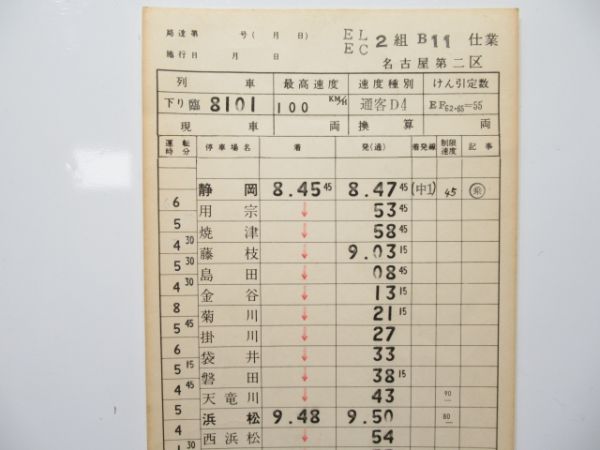 局達第 号( 月 日) EL EC 2組 B11 仕業
施行日 月 日 名古屋第二区
列車 最高速度 速度種別 けん引定数
下り臨 8101 100 KM/H 通客D4 EF62-65=55
現車 両 換算 両
運転時分 停車場名 着 発(通) 着発線 制限速度 記事
静岡 8.45 45 8.47 45 (中1) 45 乗
6
用宗 ↓ 53 45
5
焼津 ↓ 58 45
4 30
藤枝 ↓ 9.03 15
5 30
島田 ↓ 08 45
4 30
金谷 ↓ 13 15
8
菊川 ↓ 21 15
5 45
掛川 ↓ 27
6
袋井 ↓ 33
5 15
磐田 ↓ 38 15
4 45
天竜川 ↓ 43 90
5
浜松 9.48 9.50 80
4
西浜松 ↓ 54
30